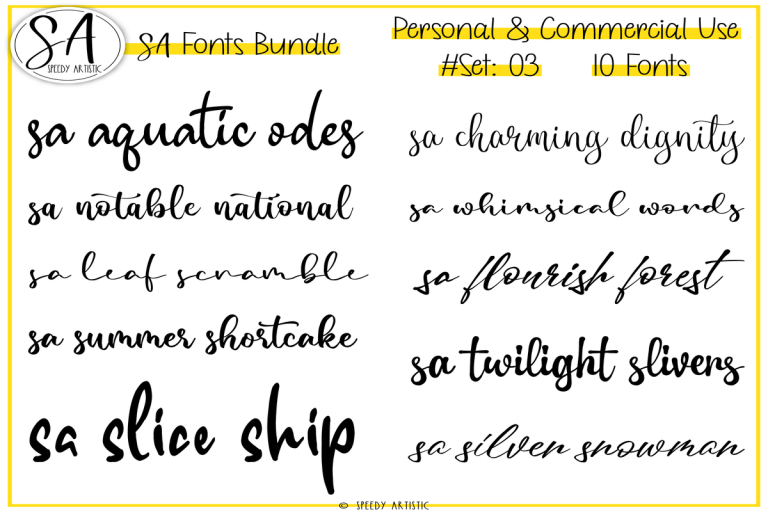 SA
SPEEDY ARTISTIC
SA Fonts Bundle
Personal & Commercial Use
#Set: 03 10 Fonts
sa aquatic odes
sa notable national
sa leaf scramble
sa summer shortcake
sa slice ship
sa charming dignity
sa whimsical words
sa flourish forest
sa twilight slivers
sa silver snowman
© SPEEDY ARTISTIC